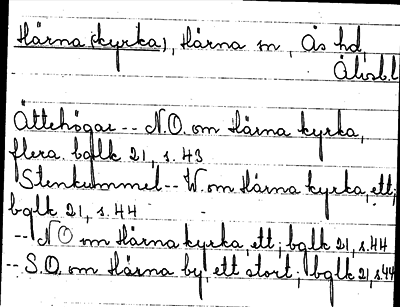 Härna (kyrka), Härna sn, Ås hd,
Älvsb.l
Ättehögar -- N.O. om Härna kyrka,
flera. bglk 21, s. 43
Stenkummel -- W. om Härna kyrka, ett;
bglk 21, s. 44
-- N O om Härna kyrka, ett; bglk 21, s. 44
-- S.O. om Härna by ett stort; bglk 21, s. 44